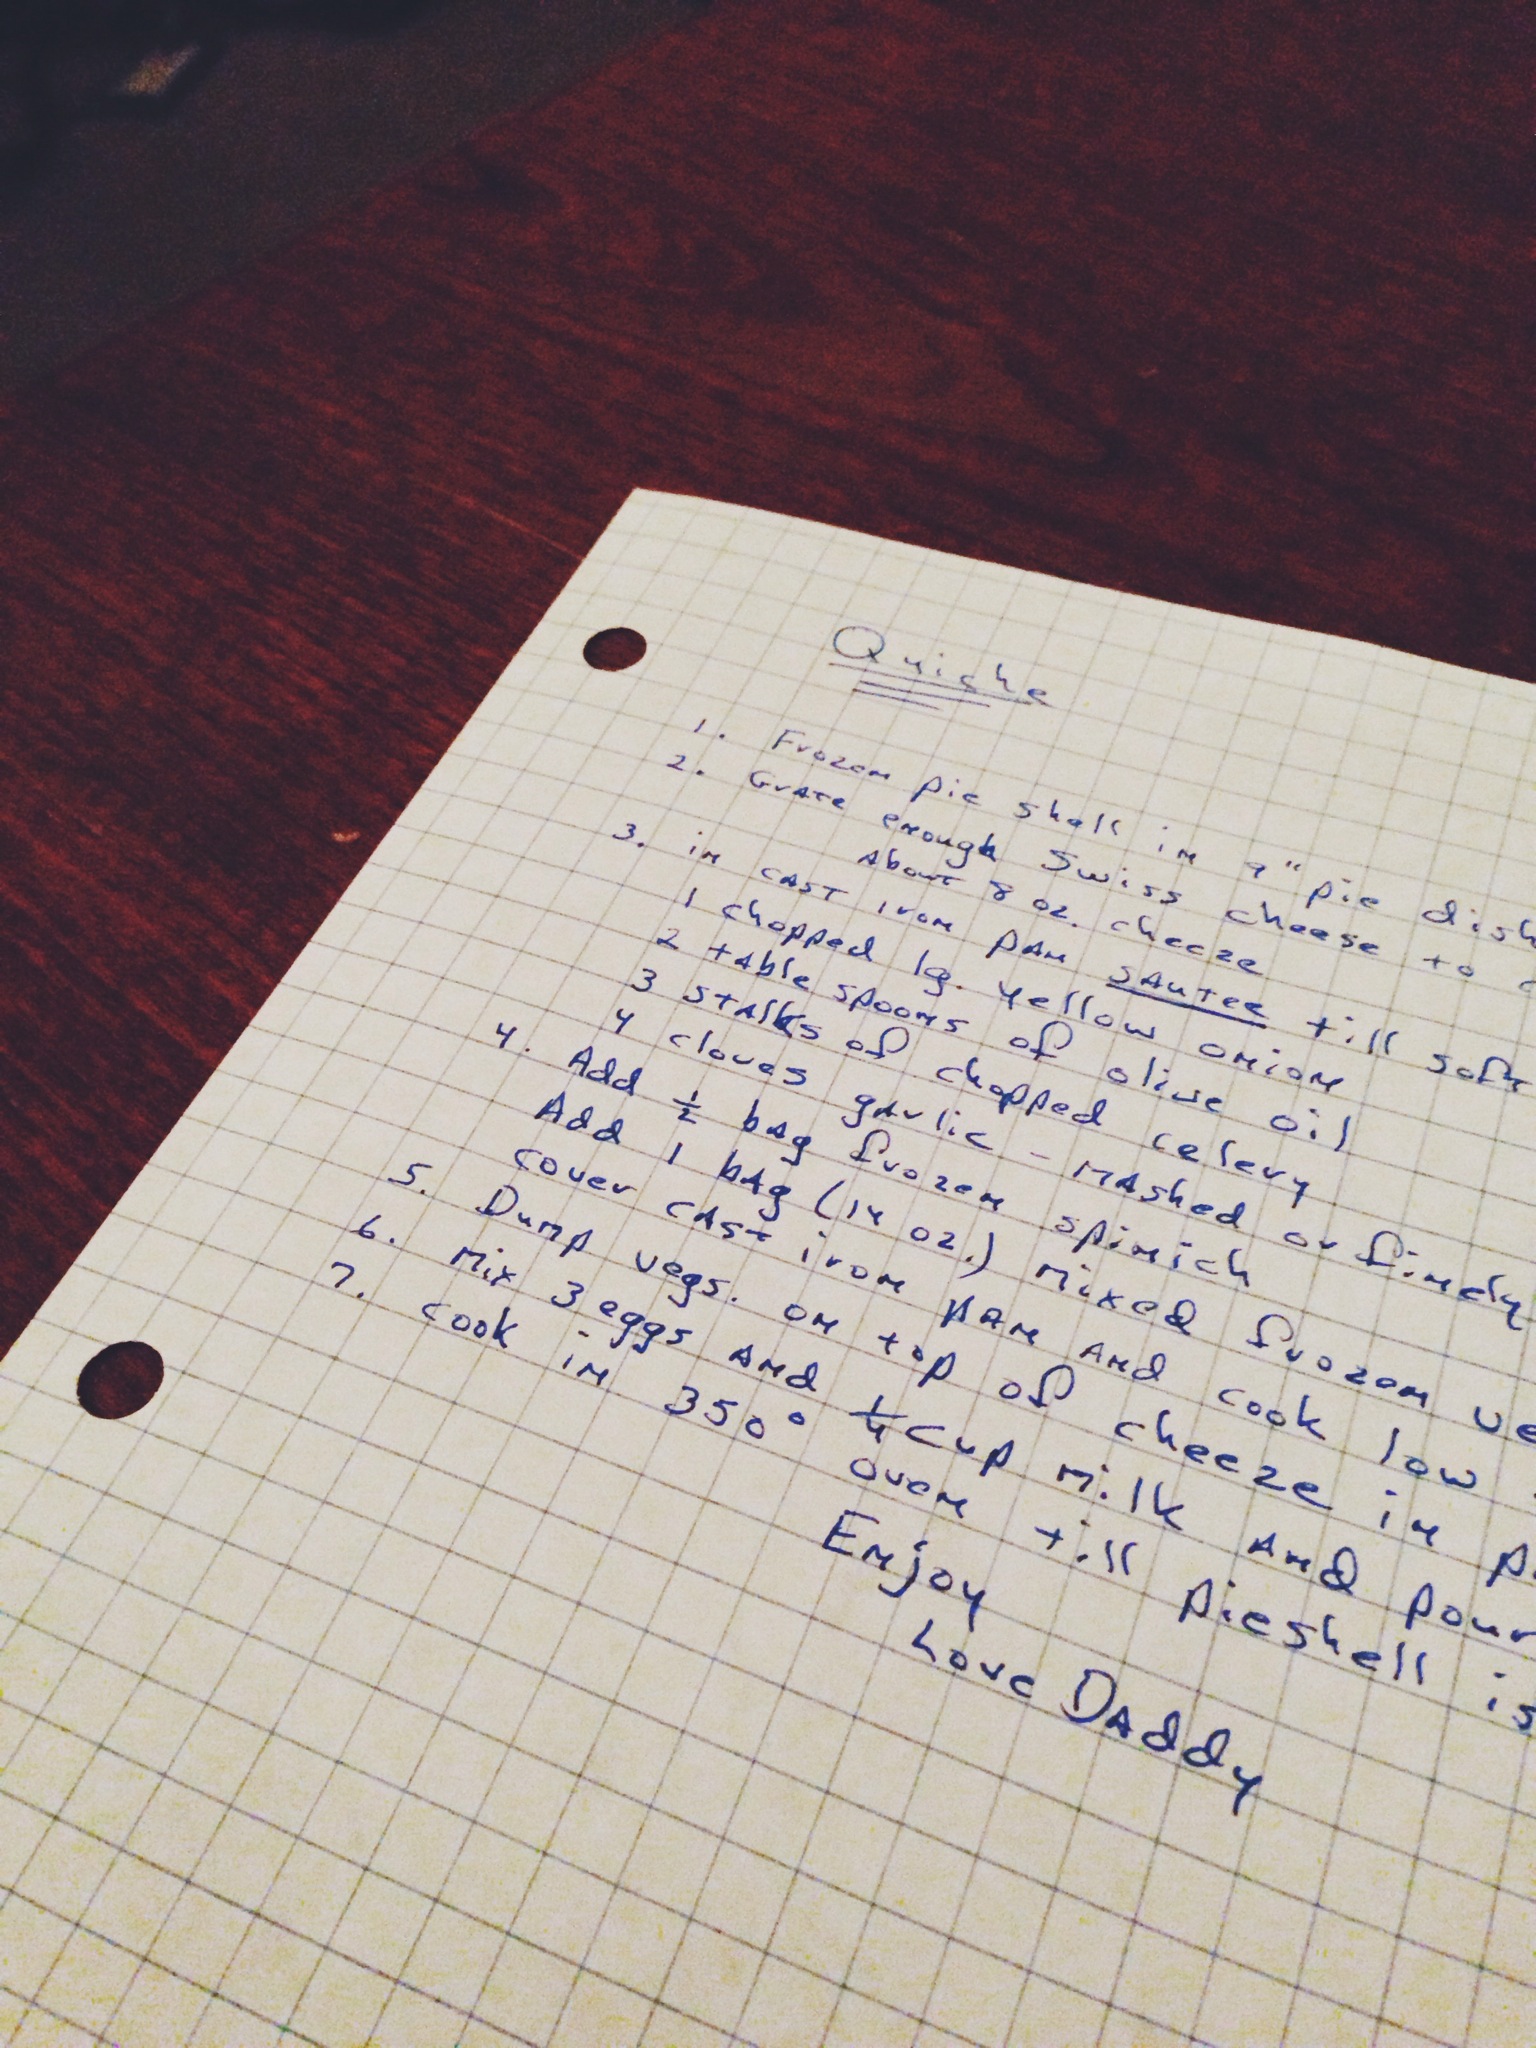 Quiche
1. Frozen pie shell in 9" pie dish
2. Grate enough Swiss cheese to
About 8 oz. cheeze
3. in cast iron pan sautee till soft
1 chopped lg. yellow onion
2 table spoons of olive oil
3 stalks of chopped celery
4 cloves garlic - mashed or finely
4. Add 1/2 bag frozen spinich
Add 1 bag (14 oz.) mixed frozen
cover cast iron pan and cook low
5. Dump vegs. on top of cheeze in
6. Mix 3 eggs and 1/4 cup milk and pour
7. cook in 350° oven till pieshell is
Enjoy
Love Daddy